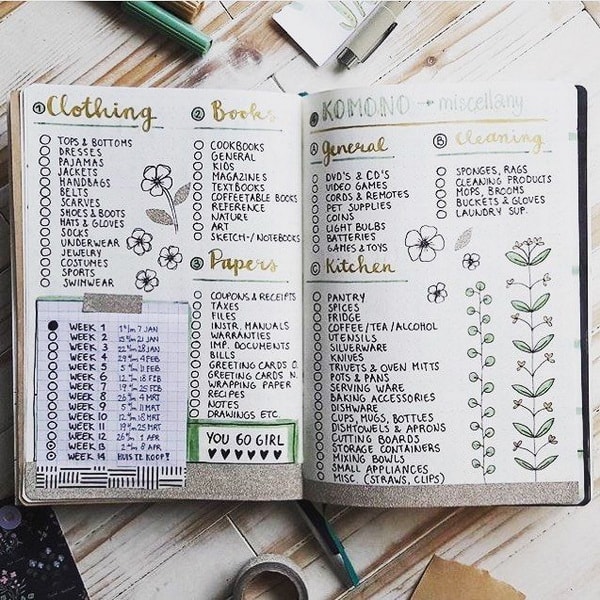 1 Clothing
TOPS & BOTTOMS
DRESSES
PAJAMAS
JACKETS
HANDBAGS
BELTS
SCARVES
SHOES & BOOTS
HATS & GLOVES
SOCKS
UNDERWEAR
JEWELRY
COSTUMES
SPORTS
SWIMWEAR
WEEK 1 1 t/m 7 JAN
WEEK 2 15 t/m 21 JAN
WEEK 3 22 t/m 28 JAN
WEEK 4 29 t/m 4 FEB
WEEK 5 5 t/m 11 FEB
WEEK 6 12 t/m 18 FEB
WEEK 7 19 t/m 25 FEB
WEEK 8 26 t/m 4 MRT
WEEK 9 5 t/m 11 MRT
WEEK 10 12 t/m 18 MRT
WEEK 11 19 t/m 25 MRT
WEEK 12 26 t/m 1 APR
WEEK 13 2 t/m 8 APR
WEEK 14 HUIS TE KOOP!
2 Books
COOKBOOKS
GENERAL
KIDS
MAGAZINES
TEXTBOOKS
COFFEETABLE BOOKS
REFERENCE
NATURE
ART
SKETCH-/NOTEBOOKS
3 Papers
COUPONS & RECEIPTS
TAXES
FILES
INSTR. MANUALS
WARRANTIES
IMP. DOCUMENTS
BILLS
GREETING CARDS O.
GREETING CARDS N.
WRAPPING PAPER
RECIPES
NOTES
DRAWINGS ETC.
YOU GO GIRL
KOMONO → miscellany
A General
DVD'S & CD'S
VIDEO GAMES
CORDS & REMOTES
PET SUPPLIES
COINS
LIGHT BULBS
BATTERIES
GAMES & TOYS
B Cleaning
SPONGES, RAGS
CLEANING PRODUCTS
MOPS, BROOMS
BUCKETS & GLOVES
LAUNDRY SUP.
C Kitchen
PANTRY
SPICES
FRIDGE
COFFEE/TEA/ALCOHOL
UTENSILS
SILVERWARE
KNIVES
TRIVETS & OVEN MITTS
POTS & PANS
SERVING WARE
BAKING ACCESSORIES
DISHWARE
CUPS, MUGS, BOTTLES
DISHTOWELS & APRONS
CUTTING BOARDS
STORAGE CONTAINERS
MIXING BOWLS
SMALL APPLIANCES
MISC. (STRAWS, CLIPS)